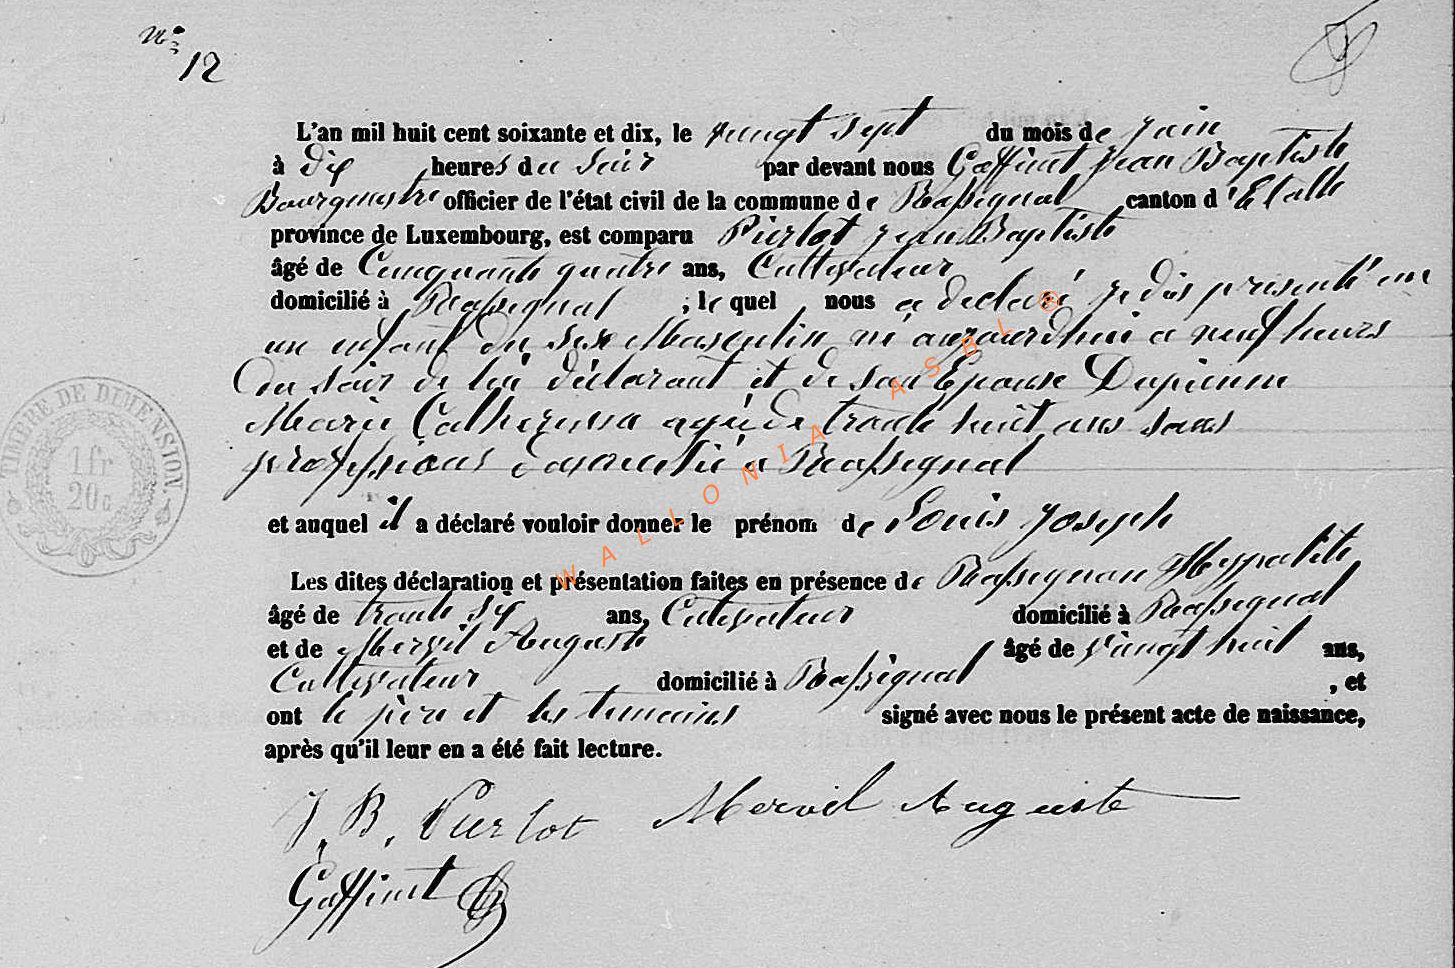 N°
12
L'an mil huit cent soixante et dix, le vingt sept du mois de juin
à dix heures du soir par devant nous Goffinet Jean Baptiste
Bourgmestre officier de l'état civil de la commune de Rossignol canton d'Etalle
province de Luxembourg, est comparu Pierlot Jean Baptiste
âgé de Cinquante quatre ans, Cultivateur
domicilié à Rossignol ; lequel nous a déclaré
un enfant du sexe Masculin né aujourdhui a neuf heures
du soir de lui déclarant et de son Epouse
Marie Catherinna agée de trante huit ans sans
professions domicilié a Rossignol
et auquel il a déclaré vouloir donner le prénom de Louis Joseph
Les dites déclaration et présentation faites en présence de Rossignon Hyppolite
âgé de trante six ans, Cultivateur domicilié à Rossignol
et de Mervil Auguste âgé de vingt huit ans,
Cultivateur domicilié à Rossignol , et
ont le père et les temoins signé avec nous le présent acte de naissance,
après qu'il leur en a été fait lecture.
J. B. Pierlot Mervil Auguste
Goffinet
TIMBRE DE DIMENSION.
1 fr
20 c
WALLONIA ASBL ®